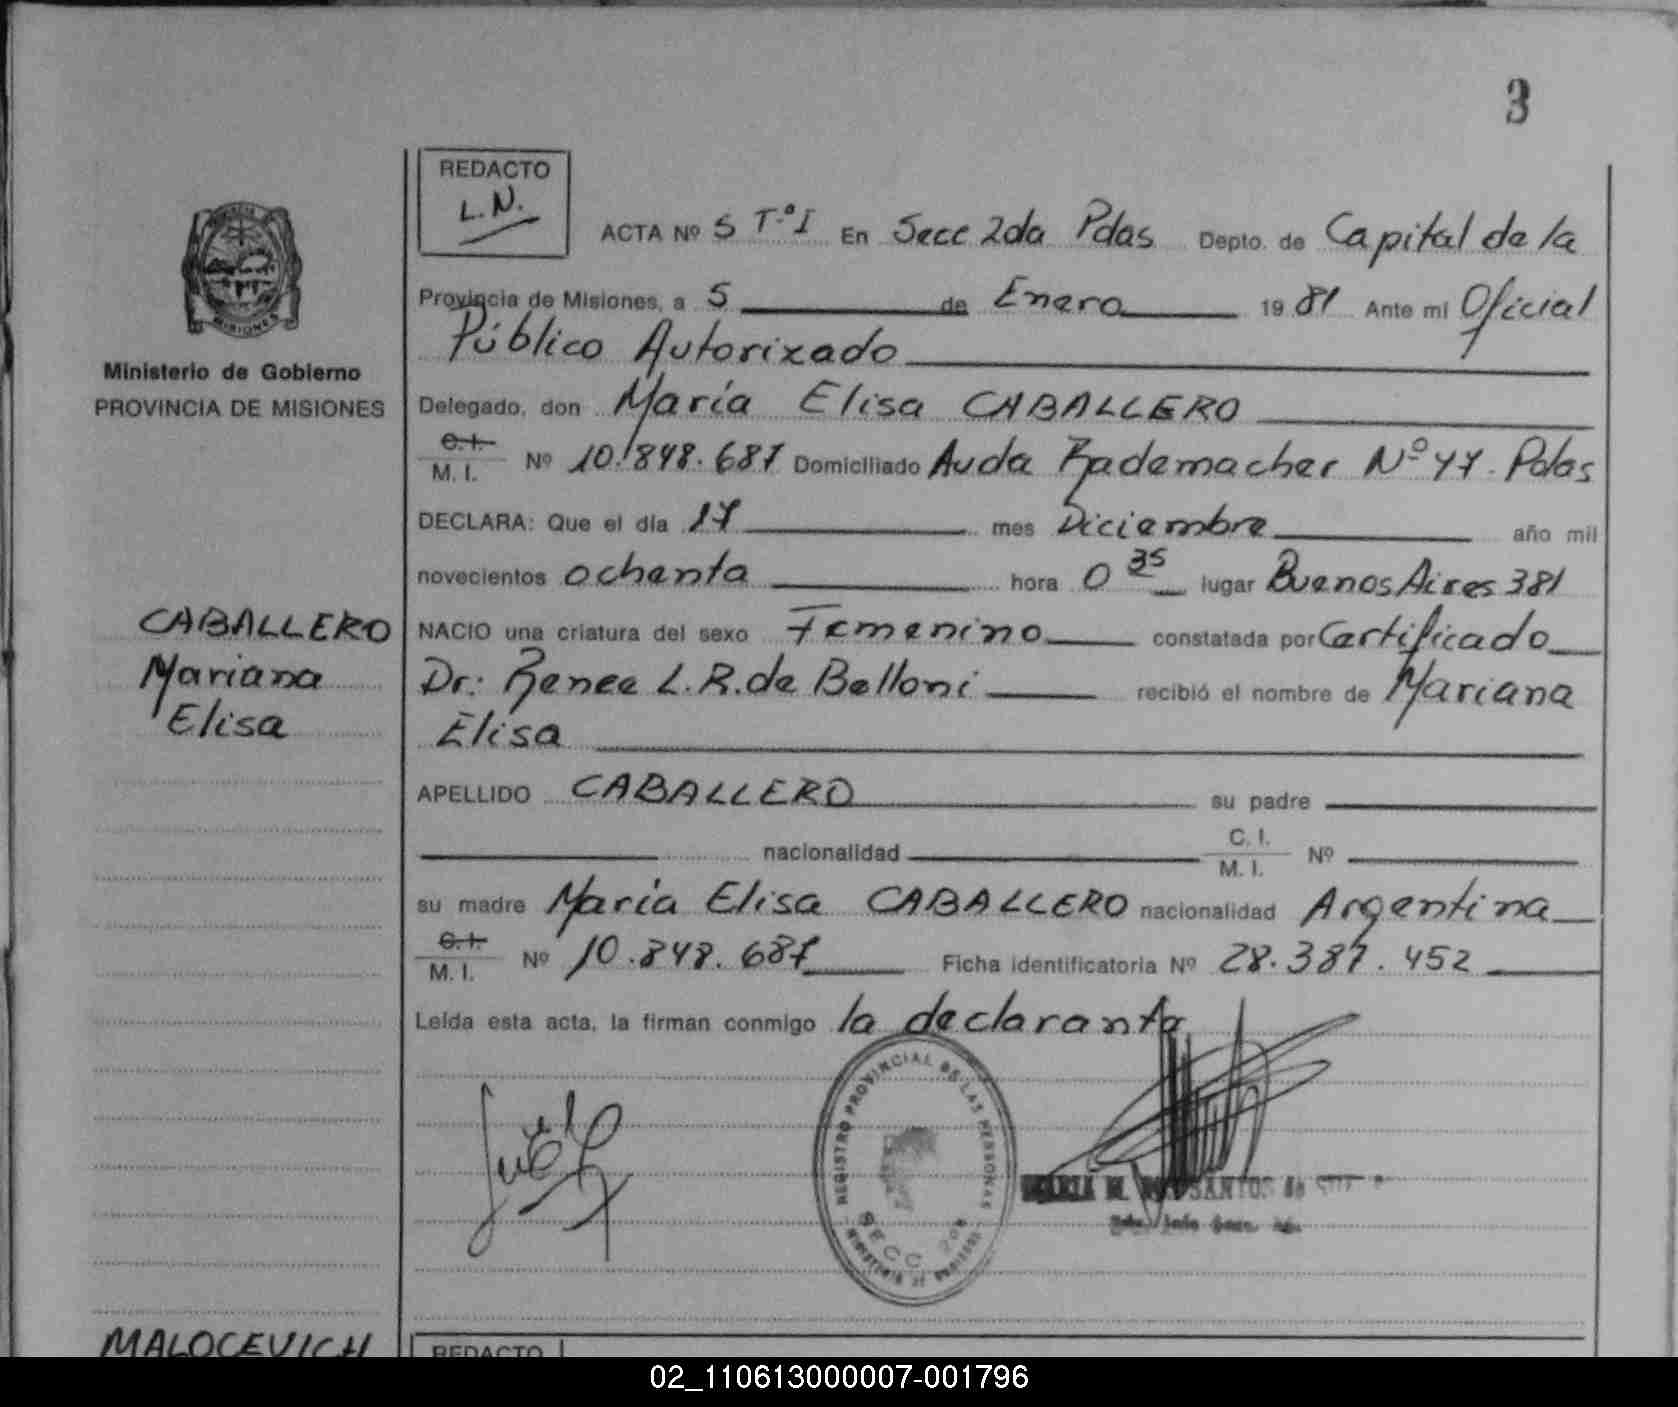 3
REDACTO
L.N.
ACTA Nº 5 T.º I En Secc 2da Pdas Depto. de Capital de la
Provincia de Misiones, a 5 de Enero 1981 Ante mi Oficial
Público Autorizado
MISIONES
Ministerio de Gobierno
PROVINCIA DE MISIONES
Delegado, don María Elisa CABALLERO
C.I.
M. I. Nº 10.848.687 Domiciliado Avda Rademacher Nº 77. Pdas
DECLARA: Que el día 17 mes Diciembre año mil
novecientos ochenta hora 0 35 lugar Buenos Aires 381
CABALLERO
Mariana
Elisa
NACIO una criatura del sexo Femenino constatada por Certificado
Dr: Renee L.R. de Belloni recibió el nombre de Mariana
Elisa
APELLIDO CABALLERO su padre
nacionalidad C. I.
M. I. Nº
su madre María Elisa CABALLERO nacionalidad Argentina
C.I.
M. I. Nº 10.848.687 Ficha identificatoria Nº 28.387.452
Leída esta acta, la firman conmigo la declarante
REGISTRO PROVINCIAL DE LAS PERSONAS
SECC 2da
MARIA M. SANTOS de
MALOCEVICH
REDACTO
02_110613000007-001796